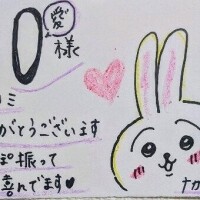 愛
様
ミ
がとうございます
ぽ振って
喜んでます♥
ナカ